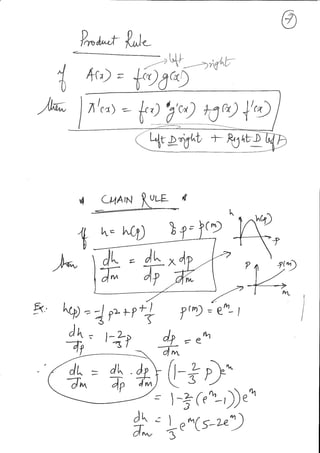 7
Product Rule
left right
If A(x) = f(x) g(x)
then A'(x) = f(x) g'(x) + g(x) f'(x)
Left D right + Right D left
* CHAIN RULE *
h h(p)
If h = h(p) & p = p(m)
p
then dh/dm = dh/dp x dp/dm
p p(m)
m
Ex: h(p) = -1/3 p² + p + 1/3 p(m) = e^m - 1
dh/dp = 1 - 2/3 p dp/dm = e^m
dh/dm = dh/dp . dp/dm = (1 - 2/3 p) e^m
= 1 - 2/3 (e^m - 1)) e^m
dh/dm = 1/3 e^m (5 - 2e^m)